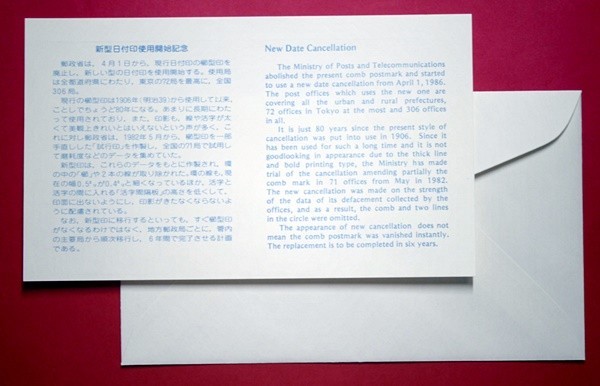 新型日付印使用開始記念
郵政省は、4月1日から、現行日付印の櫛型印を
廃止し、新しい型の日付印を使用開始する。使用局
は全都道府県にわたり、東京の72局を最高に、全国
306局。
現行の櫛型印は1906年(明治39)から使用して以来、
ことしでちょうど80年になる。あまりに長期にわた
って使用されており、また、印影も、線や活字が太
くて美観上きれいとはいえないという声が多く、こ
れに対し郵政省は、1982年5月から、櫛型印を一部
手直しした「試行印」を作製し、全国の71局で試用し
て磨耗度などのデータを集めていた。
新型印は、これらのデータをもとに作製され、環
の中の「櫛」や2本の線が取り除かれた。環の線も、現
と細くなっているほか、活字と
活字の間に入れる「活字間隔板」の高さを低くして、
印面に出ないようにし、印影がきたなくならないよ
うに配慮されている。
なお、新型印に移行するといっても、すぐ櫛型印
がなくなるわけではなく、地方郵政局ごとに、管内
の主要局から順次移行し、6年間で完了させる計画
である。
New Date Cancellation
The Ministry of Posts and Telecommunications
abolished the present comb postmark and started
to use a new date cancellation from April 1, 1986.
The post offices which uses the new one are
covering all the urban and rural prefectures,
72 offices in Tokyo at the most and 306 offices
in all.
It is just 80 years since the present style of
cancellation was put into use in 1906. Since it
has been used for such a long time and it is not
goodlooking in appearance due to the thick line
and bold printing type, the Ministry has made
trial of the cancellation amending partially the
comb mark in 71 offices from May in 1982.
The new cancellation was made on the strength
of the data of its defacement collected by the
offices, and as a result, the comb and two lines
in the circle were omitted.
The appearance of new cancellation does not
mean the comb postmark was vanished instantly.
The replacement is to be completed in six years.